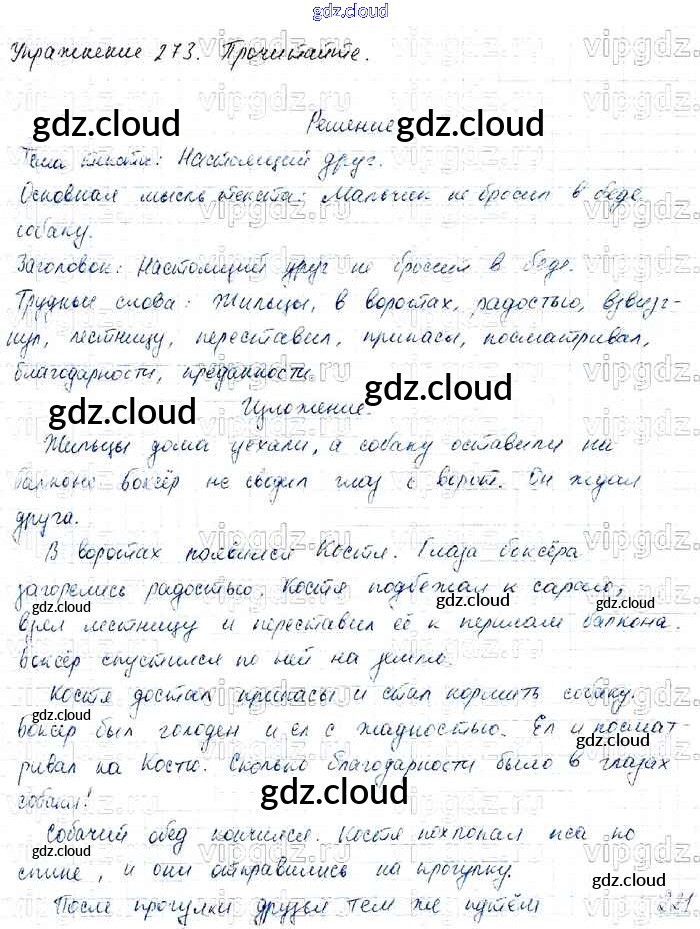 gdz.cloud
Упражнение 273. Прочитайте.
Решение
Тема текста: Настоящий друг.
Основная мысль текста: Мальчик не бросил в беде
собаку.
Заголовок: Настоящий друг не бросит в беде.
Трудные слова: Жильцы, в воротах, радостью, взвизг-
нул, лестницу, переставил, припасы, посматривал,
благодарности, преданности.
Изложение.
Жильцы дома уехали, а собаку оставили на
балконе. Боксёр не сводил глаз с ворот. Он ждал
друга.
В воротах появился Костя. Глаза боксёра
загорелись радостью. Костя подбежал к сараю,
взял лестницу и переставил её к перилам балкона.
Боксёр спустился по ней на землю.
Костя достал припасы и стал кормить собаку.
Боксёр был голоден и ел с жадностью. Ел и посмат-
ривал на Костю. Сколько благодарности было в глазах
собаки!
Собачий обед кончился. Костя похлопал пса по
спине, и они отправились на прогулку.
После прогулки друзья тем же путём
221